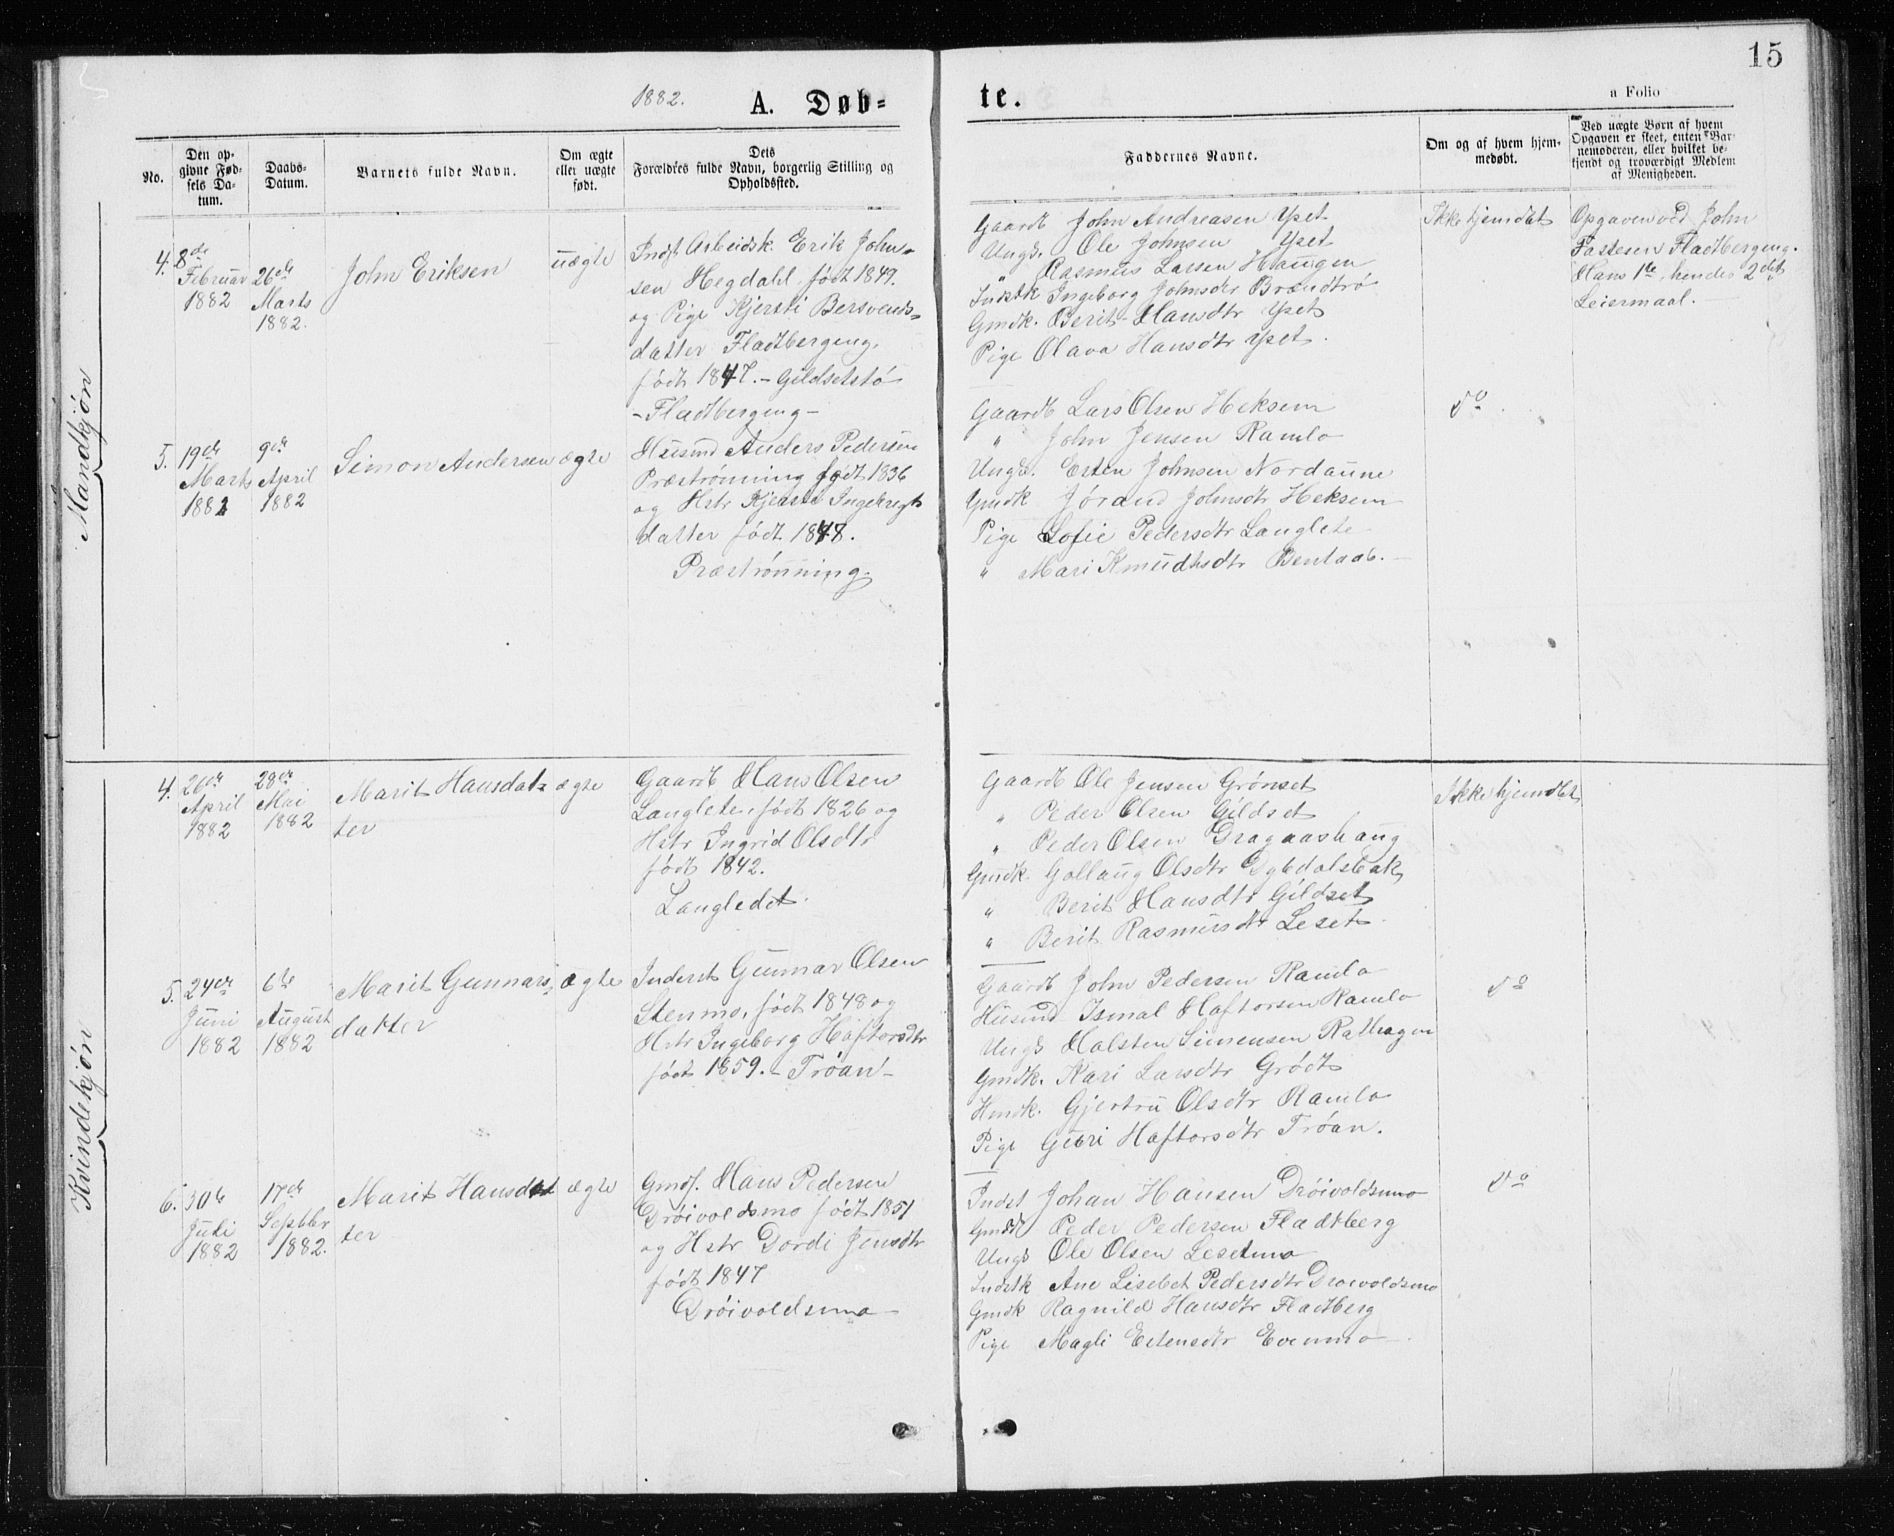 15
1882.
A. Døb-
te.
a Folio
No.
Den op-
givne Fød-
sels Da-
tum.
Daabs-
Datum.
Barnets fulde Navn.
Om ægte
eller uægte
født.
Dets
Forældres fulde Navn, borgerlig Stilling og
Opholdssted.
Faddernes Navne.
Om og af hvem hjem-
medøbt.
Ved uægte Børn af hvem
Opgaven er skeet, enten Bar-
nemoderen, eller hvilket be-
kjendt og troværdigt Medlem
af Menigheden.
Mandkjøn
4.
8de
Februar
1882
26de
Marts
1882.
John Eriksen
uægte
Indst. Arbeidsk. Erik John-
sen Hegdahl, født 1849.
og Pige Kjersti Bersvends-
datter Fladtbergeng,
født 1847. - Gildsetstø
- Fladtbergeng -
Gaardb John Andreasen Ypset
Ungk. Ole Johnsen Ypset
" Rasmus Larsen Haugen
Indstk Ingeborg Johnsdtr Brændtrø
Gmdk. Berit Hansdtr Ypset
Pige Olava Hansdtr Ypset.
Ikke hjemdøbt
Opgaven ved John
Fastesen Fladtbergeng.
Hans 1te, hendes 2det
Leiermaal.
5.
19de
Marts
1882
9de
April
1882
Simon Andersen
ægte
Husmd Anders Pedersen
Præstrønning født 1836
og Hstr Kjersti Ingebregt
datter født 1848.
Præstrønning.
Gaardb Lars Olsen Heksem
" John Jensen Ramlo
Ungk. Esten Johnsen Nordaune
Gmdk Jørand Johnsdtr Heksem
Pige Sofie Pedersdtr Langlete
" Mari Knudtsdtr Bentaas.
Do
Kvindekjøn
4.
26de
April
1882
28de
Mai
1882
Marit Hansdat-
ter
ægte
Gaardb Hans Olsen
Langlete, født 1826 og
Hstr Ingrid Olsdtr
født 1842.
Langledet.
Gaardb Ole Jensen Grønset
" Peder Olsen Gildset
" Peder Olsen Graaashaug
Gmdk. Gollaug Olsdtr Dybdalsbak
" Berit Hansdtr Gildset
" Berit Rasmusdtr Leset
Ikke hjemdøbt
5.
24de
Juni
1882
6te
August
1882
Marit Gunnars-
datter
ægte
Inderst Gunnar Olsen
Stenmo, født 1848 og
Hstr Ingeborg Haftorsdtr
født 1859. - Trøan -
Gaardb John Pedersen Ramlo
Husmd Ismal Haftorsen Ramlo
Ungk Halsten Simensen Rathagen
Gmdk. Kari Larsdtr Grødt
Hmdk. Gjertru Olsdtr Ramlo
Pige Guri Haftorsdtr Trøan.
Do
6.
30te
Juli
1882
17de
Septbr
1882.
Marit Hansdat
ter
ægte
Gmdf. Hans Pedersen
Drøivoldsmo født 1851
og Hstr Dordi Jensdtr
født 1847
Drøivoldsmo
Indst Johan Hansen Drøivoldsmo
Gmdk Peder Pedersen Fladtberg
Ungk Ole Olsen Lesetmo
Indstk Ane Lisebet Pedersdtr Drøivoldsmo
Gmdk Ragnild Hansdtr Fladtberg
Pige Magli Estensdtr Evenmo
Do